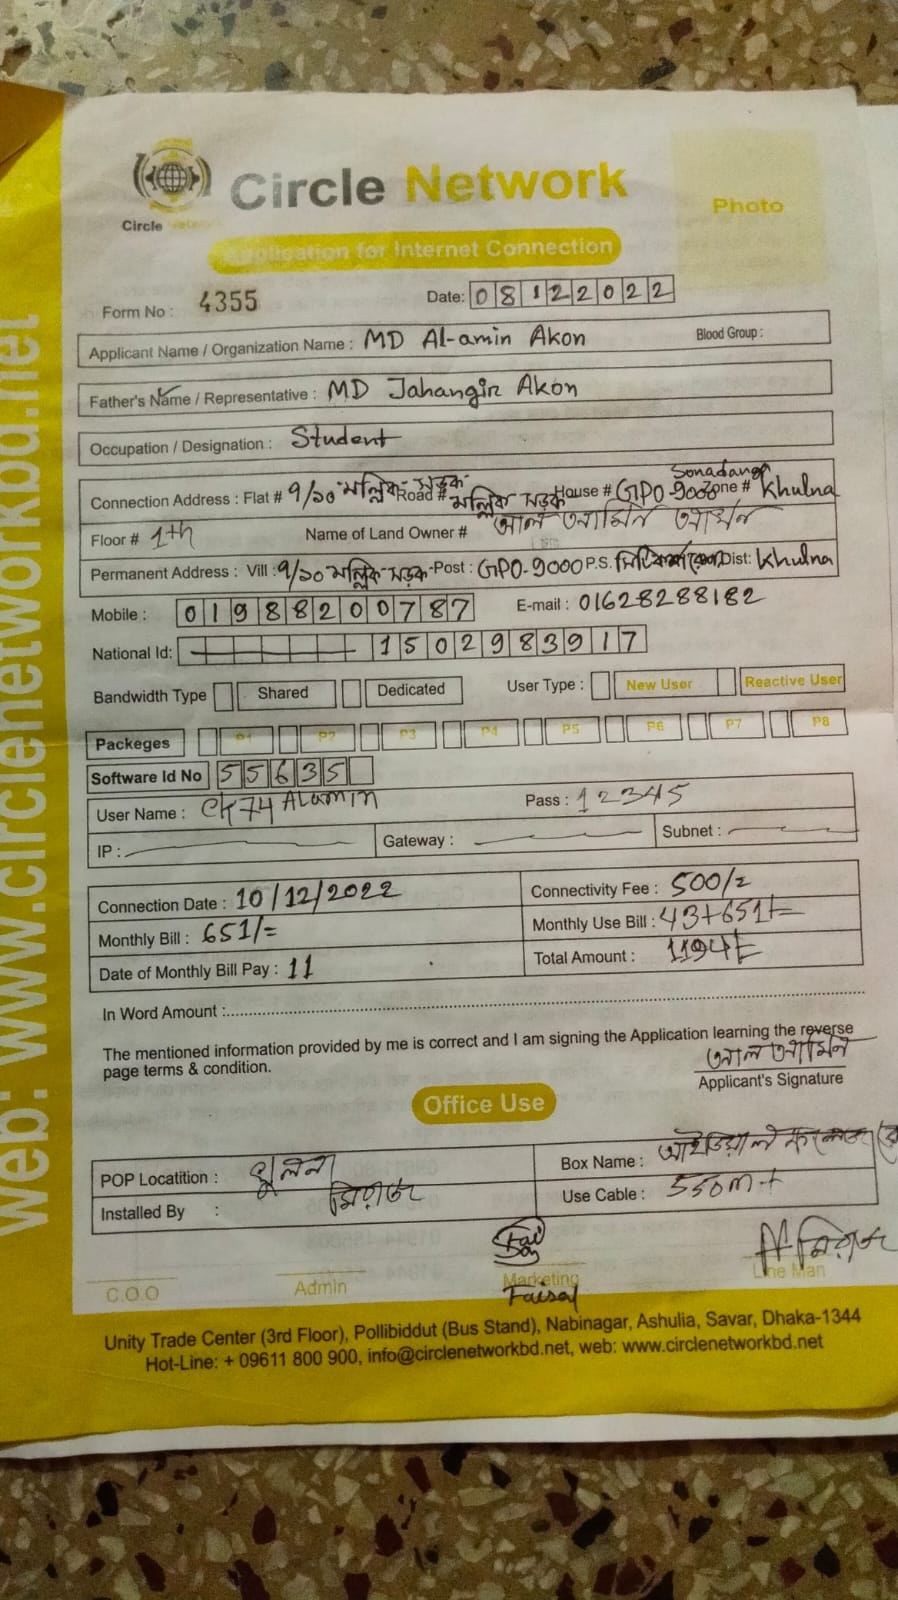 Circle Network
Circle Network
Photo
Application for Internet Connection
Form No : 4355 Date: 08122022
Applicant Name / Organization Name : MD Al-amin Akon Blood Group :
Father's Name / Representative : MD Jahangir Akon
Occupation / Designation : Student
Connection Address : Flat # ৭/১০ মল্লিক সড়ক Road # মল্লিক সড়ক House # GPO-9000 Sonadanga Zone # Khulna
Floor # 1th Name of Land Owner # আল আমিন
Permanent Address : Vill : ৭/১০ মল্লিক সড়ক Post : GPO-9000 P.S. Dist: Khulna
Mobile : 01988200787 E-mail : 01628288182
National Id: 1502983917
Bandwidth Type Shared Dedicated User Type : New User Reactive User
Packeges P1 P2 P3 P4 P5 P6 P7 P8
Software Id No 55635
User Name : CK74 ALAMIN Pass : 12345
IP : Gateway : Subnet :
Connection Date : 10/12/2022 Connectivity Fee : 500/=
Monthly Bill : 651/= Monthly Use Bill : 43+651/=
Date of Monthly Bill Pay : 11 Total Amount : 1194/=
In Word Amount :
The mentioned information provided by me is correct and I am signing the Application learning the reverse
page terms & condition.
আল আমিন
Applicant's Signature
Office Use
POP Locatition : খুলনা Box Name : আইডিয়াল
Installed By : মিরাজ Use Cable : 550m+
মিরাজ
C.O.O Admin Marketing Line Man
Faisal
Unity Trade Center (3rd Floor), Pollibiddut (Bus Stand), Nabinagar, Ashulia, Savar, Dhaka-1344
Hot-Line: + 09611 800 900, info@circlenetworkbd.net, web: www.circlenetworkbd.net
web: www.circlenetworkbd.net